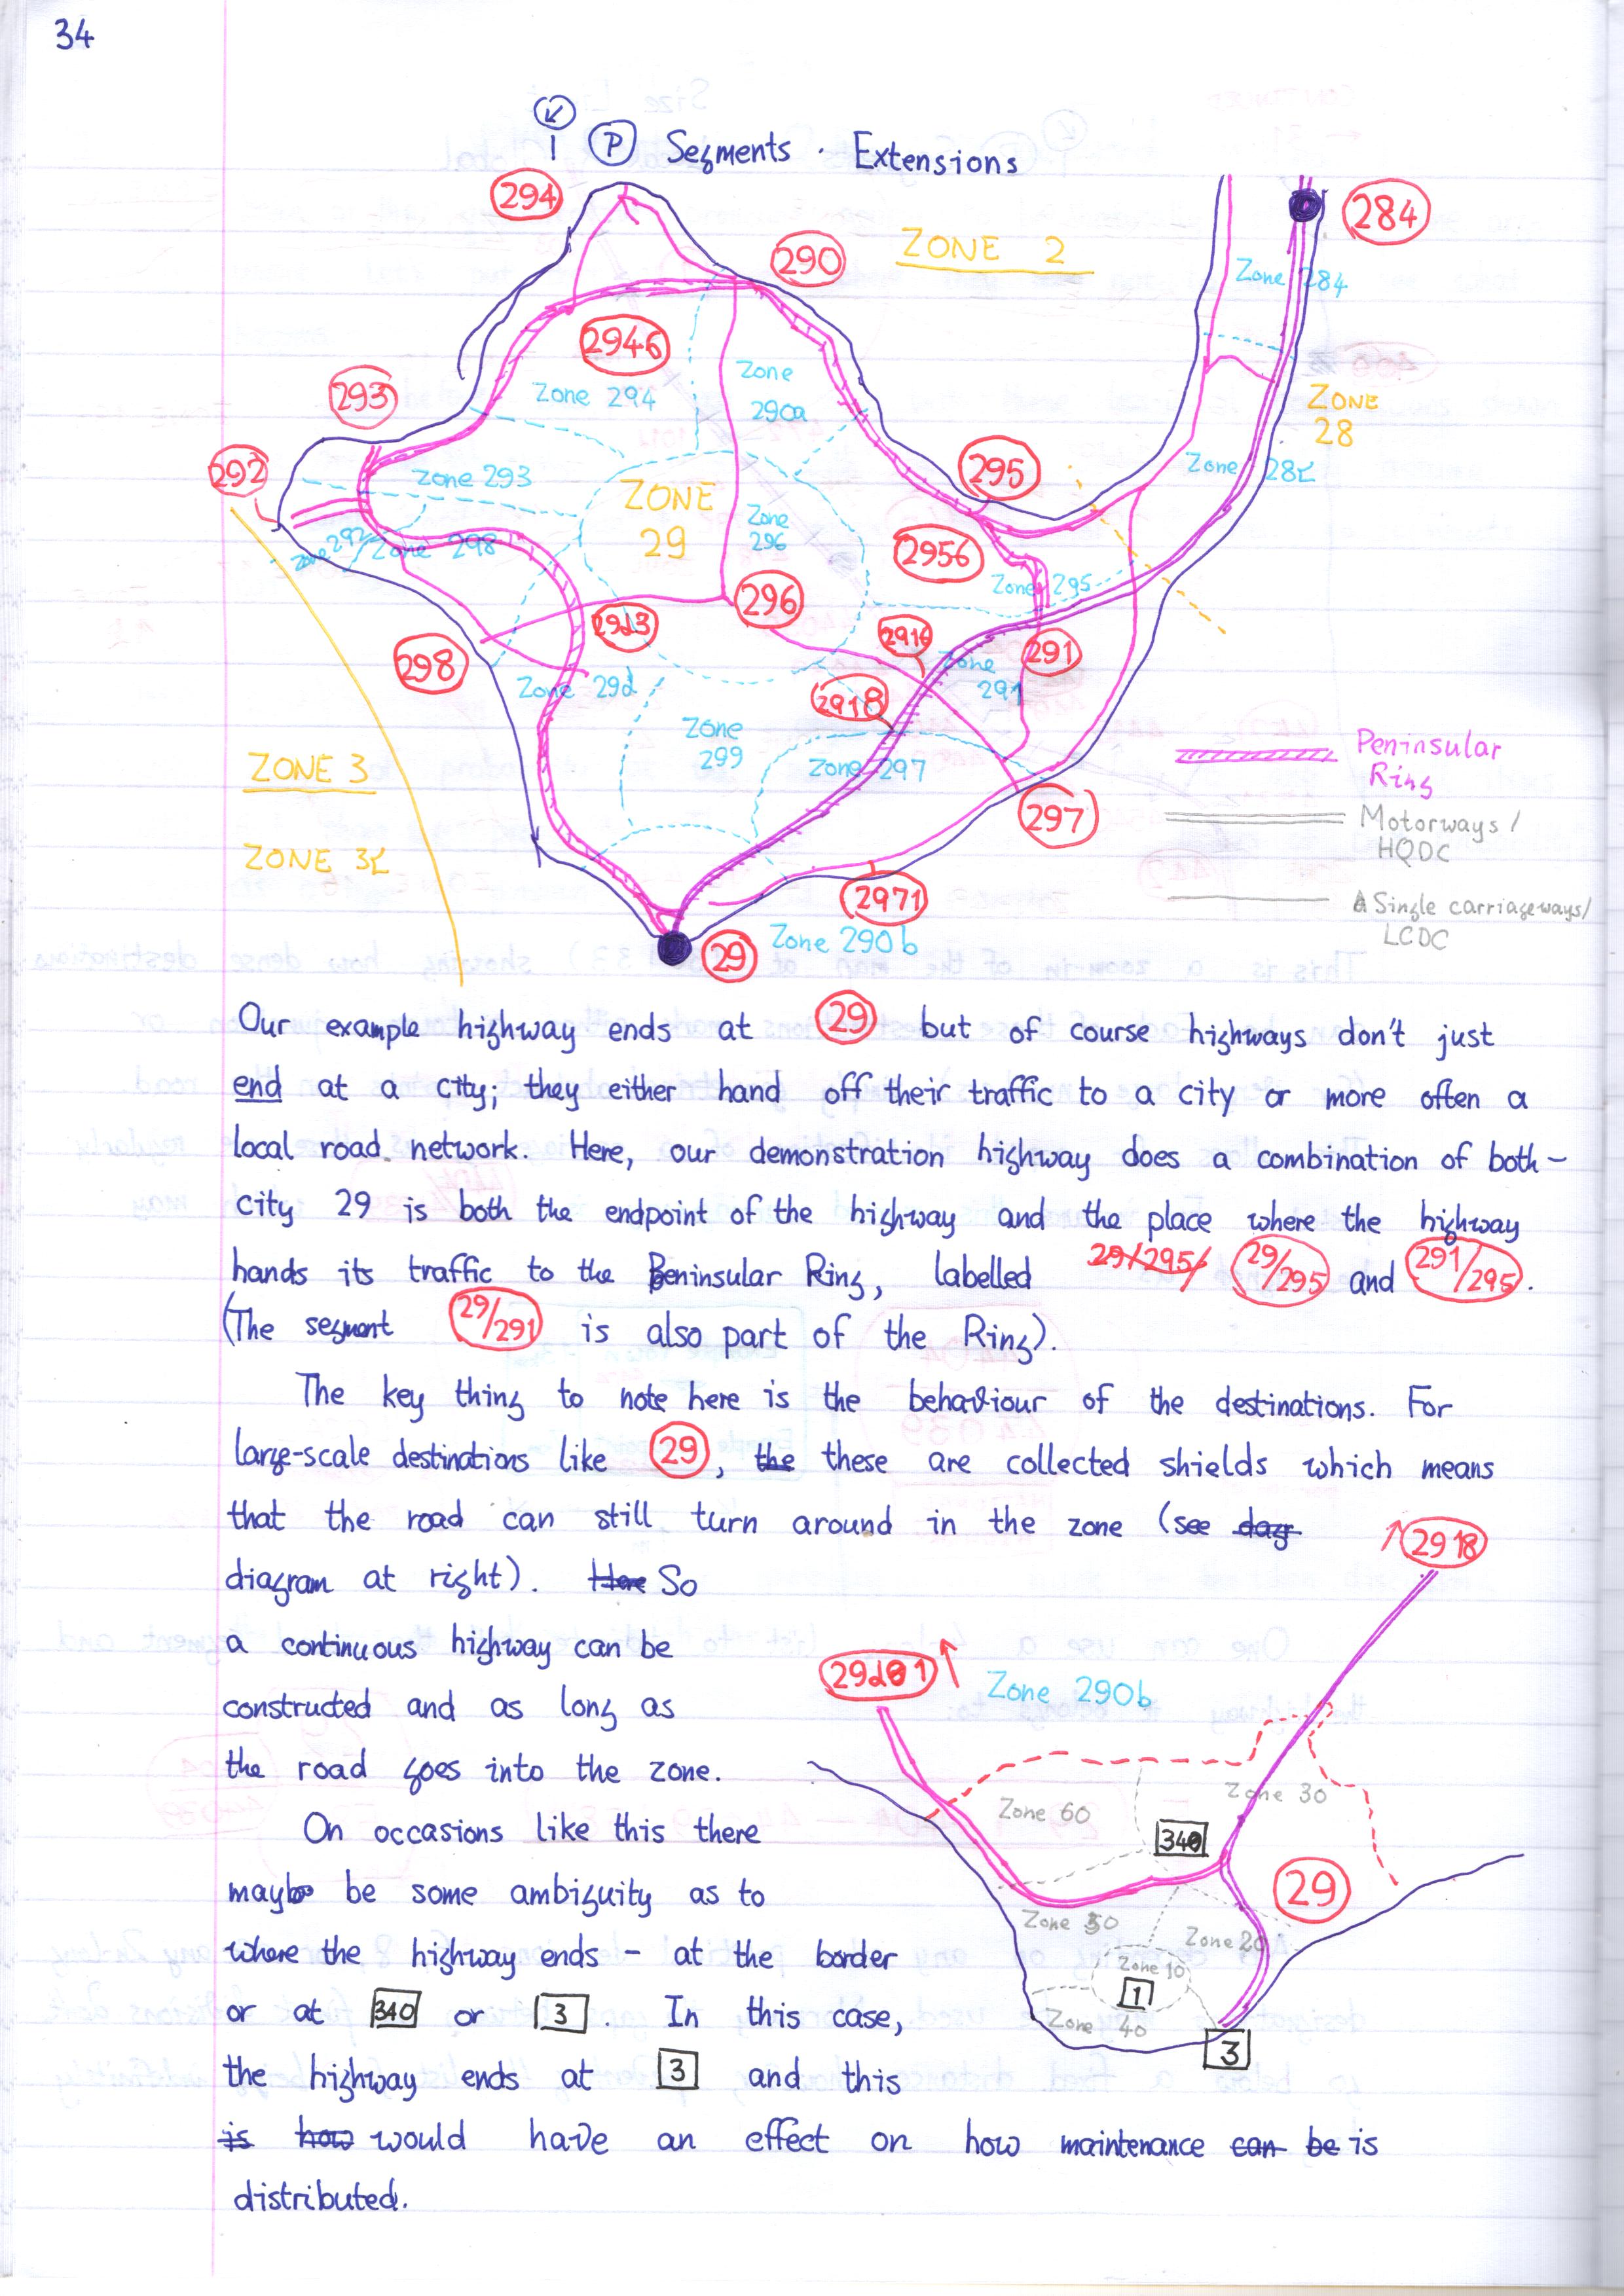 34
↙
1 Ⓟ Segments · Extensions
294
290
ZONE 2
284
Zone 284
2946
293
Zone 294
Zone
290a
ZONE
28
295
292
Zone 293
ZONE
29
Zone
296
Zone 28
2956
Zone 292
Zone 298
Zone 295
296
2916
291
298
Zone 29d
2918
Zone
291
Zone
299
Zone 297
ZONE 3
297
Peninsular
Ring
Motorways /
HQDC
Single carriageways/
LCDC
2971
29
Zone 290b
Our example highway ends at 29 but of course highways don't just
end at a city; they either hand off their traffic to a city or more often a
local road network. Here, our demonstration highway does a combination of both -
city 29 is both the endpoint of the highway and the place where the highway
hands its traffic to the Peninsular Ring, labelled 29/295/ 29/295 and 291/295.
(The segment 29/291 is also part of the Ring).
The key thing to note here is the behaviour of the destinations. For
large-scale destinations like 29, the these are collected shields which means
that the road can still turn around in the zone (see
diagram at right). Here So
a continuous highway can be
constructed and as long as
the road goes into the zone.
On occasions like this there
may be some ambiguity as to
where the highway ends - at the border
or at 340 or 3. In this case,
the highway ends at 3 and this
is how would have an effect on how maintenance can be is
distributed.
2918
Zone 290b
Zone 60
Zone 30
340
29
Zone 20
Zone 10
1
Zone 40
3